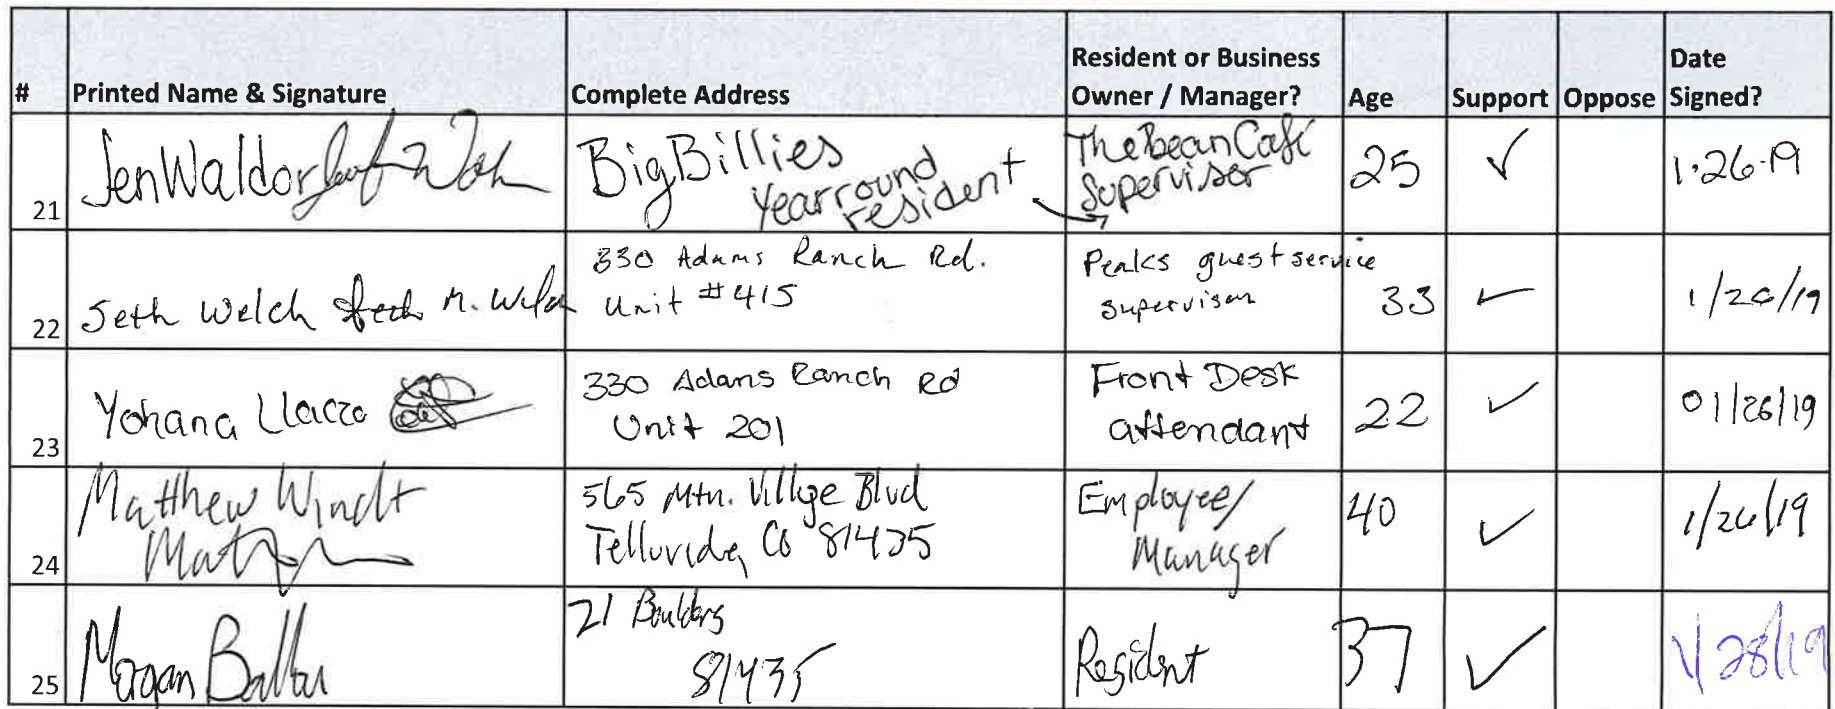 # Printed Name & Signature Complete Address Resident or Business Owner / Manager? Age Support Oppose Date Signed?
21 Jen Waldorf Big Billies Yearround resident The Bean Café Supervisor 25 ✓ 1·26·19
22 Seth Welch Seth M. Welch 330 Adams Ranch Rd. Unit #415 Peaks guest service supervisor 33 ✓ 1/26/19
23 Yohana Llacza 330 Adams Ranch Rd Unit 201 Front Desk attendant 22 ✓ 01/26/19
24 Matthew Windt 565 Mtn. Village Blvd Telluride, Co 81435 Employee/ Manager 40 ✓ 1/26/19
25 Morgan 21 Boulders 81435 Resident 37 ✓ 1/28/19